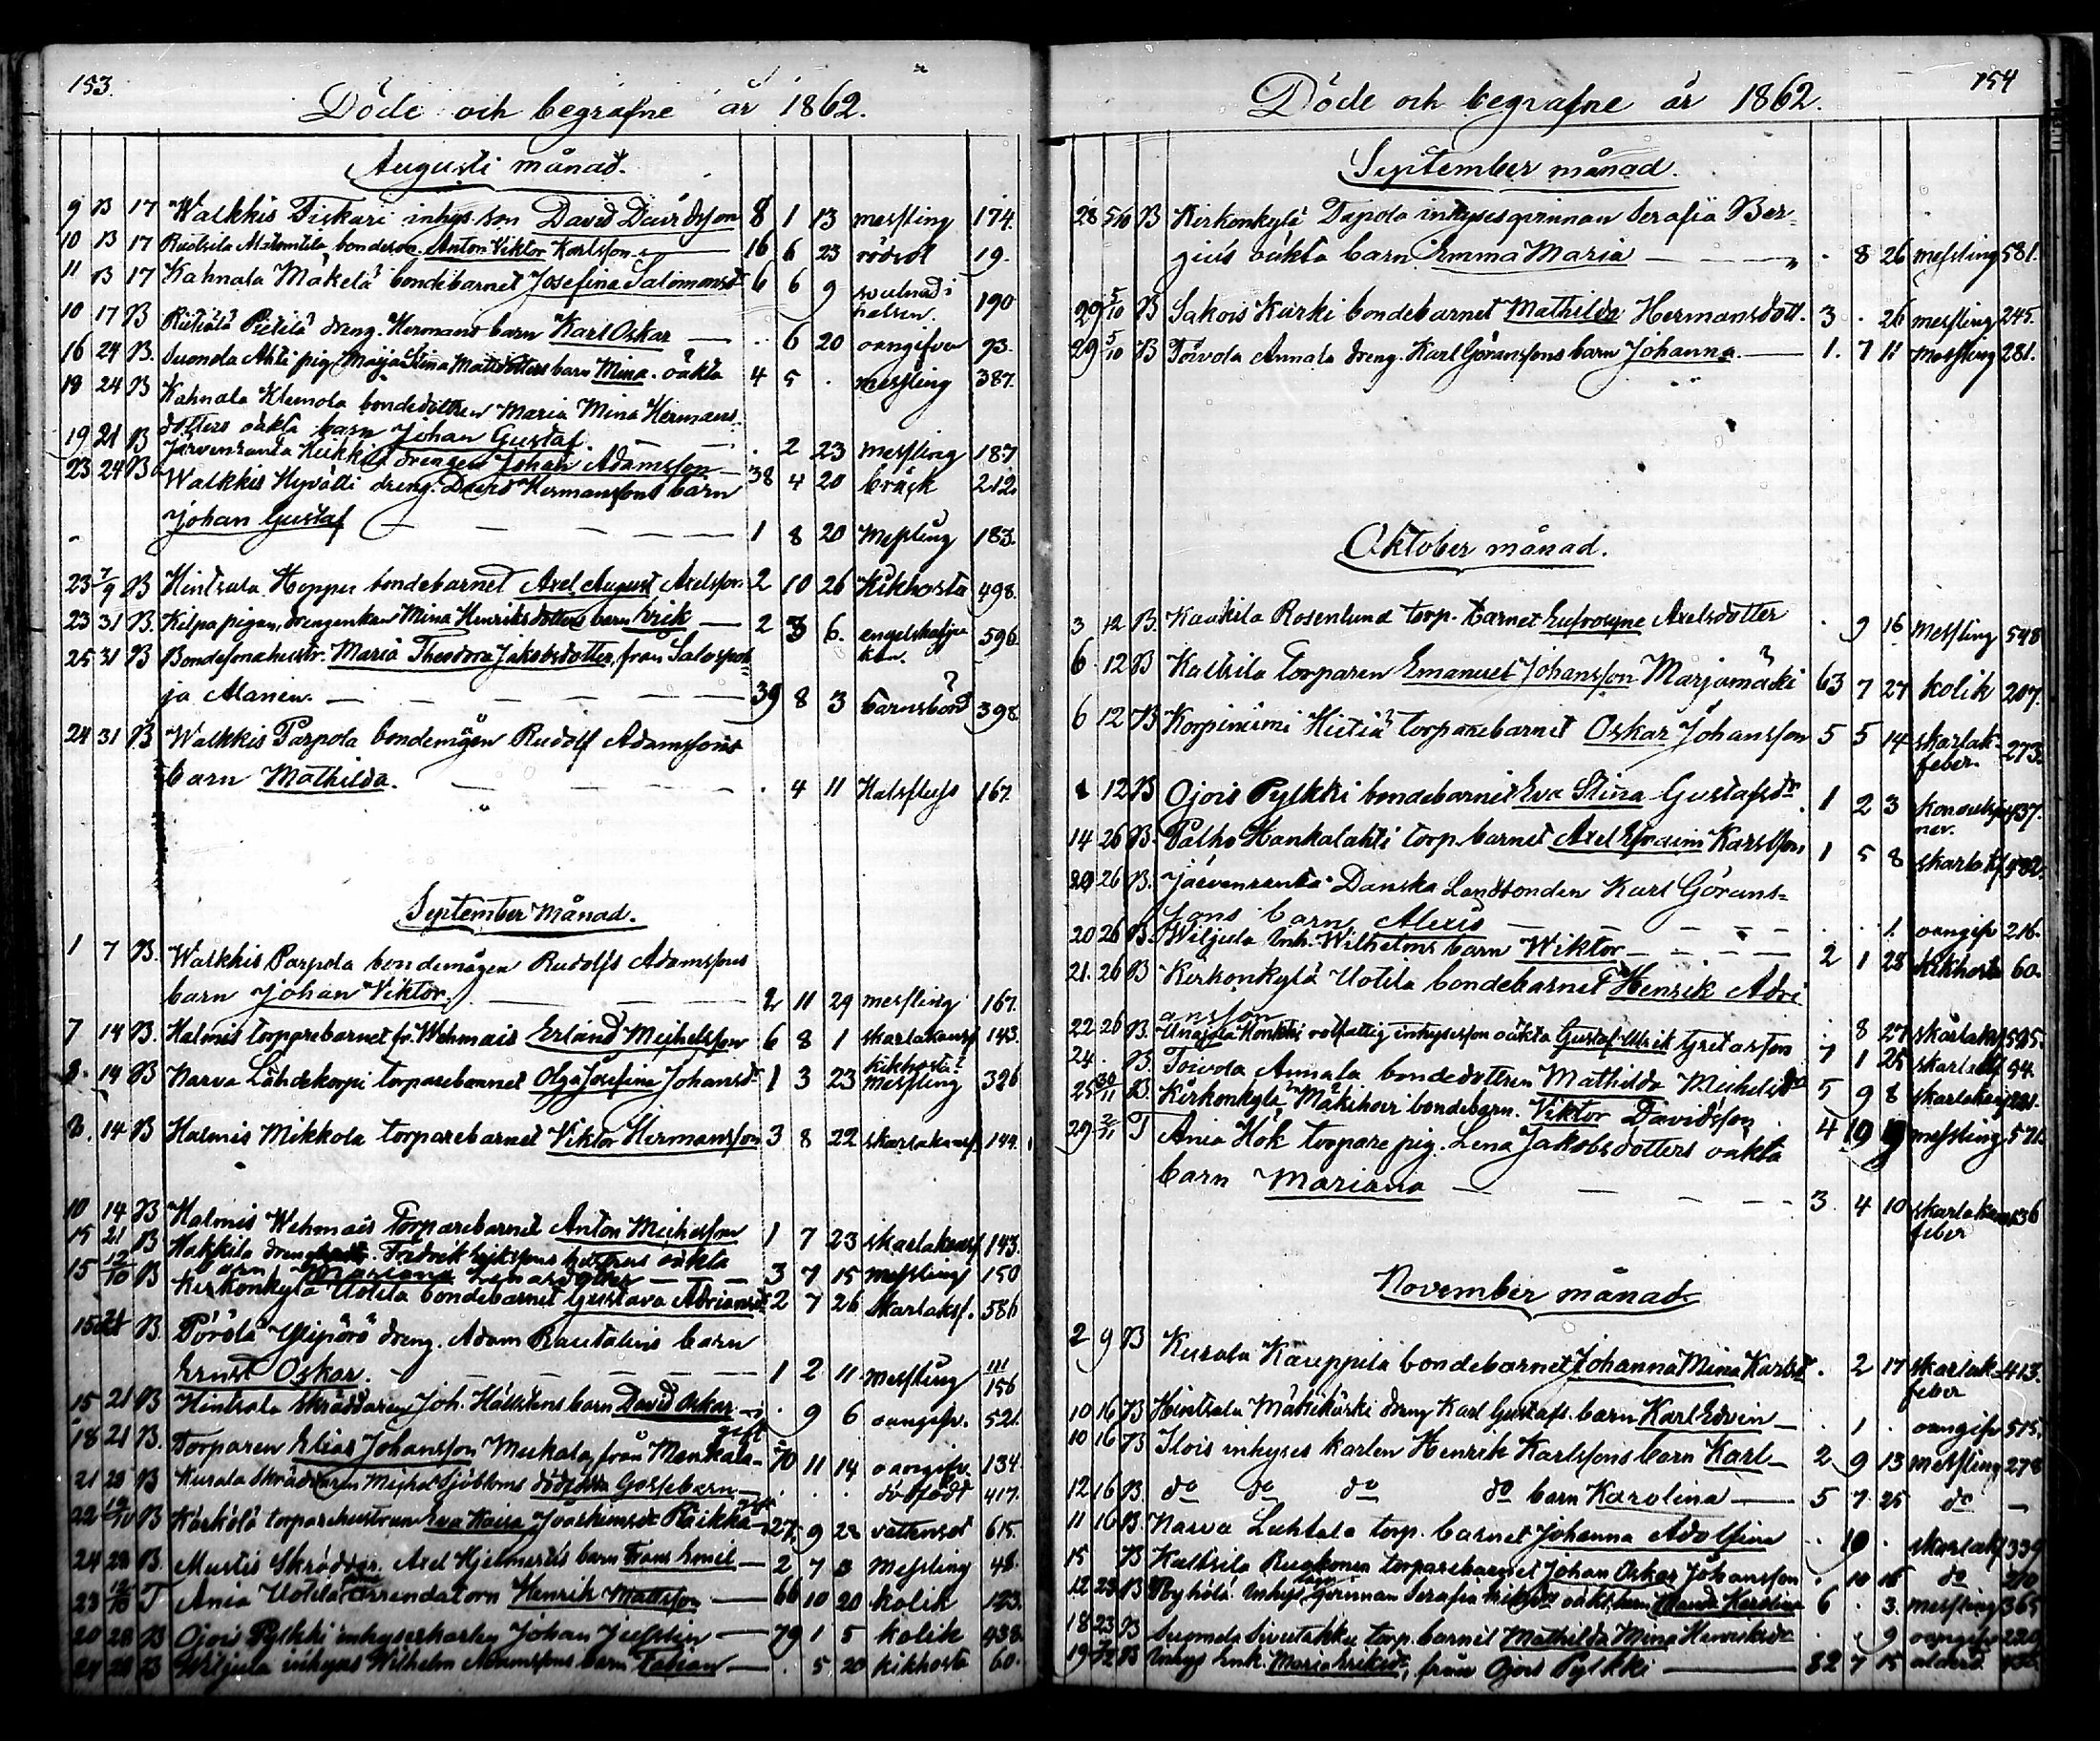 153.
Döde och begrafne år 1862.
Augusti månad.
9 B 17 Walkkis Fiskari inhys. son David Davidsson 8 1 13 messling 174.
10 B 17 bondeson Anton Viktor Karlsson 16 6 23 rödsot 19.
11 B 17 Kahnala Mäkelä bondebarnet Josefina Salomonsdr 6 6 9 svulnad i halsen. 190
10 17 B Pietilä dreng. Hermans barn Karl Oskar — . 6 20 oangifven 93.
16 24 B. Suonola Ahti pig. Maija Stina Mattsdotters barn Mina. oäkta 4 5 . messling 387.
18 24 B Kahnala Klemola bondedottren Maria Mina Hermans
dotters oäkta barn Johan Gustaf. — . 2 23 messling 187
19 21 B Järvenranta Heikkilä drengen Johan Adamsson — 38 4 20 bråck 212.
23 24 B Walkkis Hyvätti dreng. David Hermanssons barn
Johan Gustaf — — — — 1 8 20 Messling 183.
23 7/9 B Hintsala Hoppu bondebarnet Axel August Axelsson 2 10 26 Kikhosta 498.
23 31 B. Kilpa pigan, drengenkan Mina Henriksdotters barn Erik — 2 3 6. engelska sju kan. 596.
25 31 B Bondesonahustr. Maria Theodora Jakobsdotter, från Salospoh
ja Alanen. — — — — 39 8 3 barnsbörd? 398.
24 31 B Walkkis Parpola bondemågen Rudolf Adamssons
barn Mathilda. — — — . 4 11 Halsfluss 167.
September månad.
1 7 B. Walkkis Parpola bondemågen Rudolfs Adamssons
barn Johan Viktor — — — 2 11 29 messling 167.
7 14 B. Halmis torparebarnet fr. Wehmais Erland Michelsson 6 8 1 skarlakansf. 143.
8. 14 B Narva Lähdekorpi torparebarnet Olga Josefina Johansdr 1 3 23 kikhosta messling 326
8. 14 B Halmis Mikkola torparebarnet Viktor Hermansson 3 8 22 skarlakansf. 144.
10 14 B Halmis Wehmais Torparebarnet Anton Michelsson 1 7 23 skarlakansf. 143.
15 21 B Hakkila Fredrik hustrus oäkta
barn Mariana — — — 3 7 15 messling 150
15 12/10 B Kirkonkylä Uotila bondebarnet Gustava Adriansdr 2 7 26 skarlaksf. 586
15 21 B. Pörölä Ylipörö dreng. Adam Rautalins barn
Ernst Oskar. — — — — 1 2 11 messling 111/156
15 21 B Hintsala skräddaren Joh. Hällstens barn David Oskar — . 9 6 oangifv. 521.
18 21 B. Torparen Elias Johansson Mickala, från Menkala — gift 70 11 14 oangifv. 134.
21 28 B Kurala skräddaren Michel Sjöbloms dödfödda Gossebarn — . . . dödfödt 417.
22 12/10 B Kärkölä torparehustrun Eva Kaisa Joakimsdr — 27. 9 28 vattensot 615.
24 28 B. Murtis Skräddar. Axel Hjelmertis barn Frans Emil — 2 7 8 Messling 48.
23 12/10 T Ania Uotila Arrendatorn Henrik Mattsson — 66 10 20 kolik 123.
20 28 B Ojois Pylkki inhyseskarlen Johan — 79 1 5 kolik 438.
24 28 B Wiljula inhyses Wilhelm Adamssons barn Fabian — . 5 20 kikhosta 60.
154
Döde och begrafne år 1862.
September månad.
28 5/10 B Kirkonkylä Tapola inhysesqvinnan Serafia Ber-
gius oäkta barn Emma Maria — — . 8 26 messling 581.
29 5/10 B Sakois Kurki bondebarnet Mathilda Hermansdott. 3 . 26 messling 245.
29 5/10 B Toivola Annala dreng. Karl Göranssons barn Johanna. — 1. 7 11 messling 281.
Oktober månad.
3 12 B. Kaukila Rosenlund torp. barnet Eufrosyne Axelsdotter . 9 16 messling 548
6 12 B Kaltsila Torparen Emanuel Johansson Marjamäki 63 7 27 kolik 207.
6 12 B Korpiniemi Hietia torparebarnet Oskar Johansson 5 5 14 skarlak-feber. 273.
8 12 B Ojois Pylkki bondebarnet Eva Stina Gustafsdr. 1 2 3 konvulsjoner. 437.
14 26 B. Palho Hankalahti torp. barnet Axel Efraim Karlsson 1 5 8 skarlakf.
20 26 B. Järvenranta Danska Landbonden Karl Görans-
sons barn Alexis — — — . . 1. oangifv 216.
20 26 B. Wiljula Inh. Wilhelms barn Wiktor — — 2 1 28 kikhosta 60.
21. 26 B Kirkonkylä Uotila bondebarnet Henrik Adri
ansson . 8 27 skarlakf. 585.
22 26 B. rotfattig inhysesson oäkta Gustaf Ulrik Gretasson 7 1 25 skarlakf. 94.
24 . B. Toivola Annala bondedottren Mathilda Michelsdr 5 9 8 skarlakansf
25 30/11 B. Kirkonkylä Mäkihovi bondebarn. Viktor Davidsson 4 10 messling 571.
29 2/11 T Ania Hök torpare pig. Lena Jakobsdotters oäkta
barn Mariana — — — 3. 4 10 skarlakans feber 136
November månad.
2 9 B Kurala Kauppila bondebarnet Johanna Mina Karlsdr . 2 17 skarlak-feber 413.
10 16 B Hintsala Mäkikärki dreng Karl Gustafs. barn Karl Edvin — . 1 . oangifv 515.
10 16 B Ilois inhyses karlen Henrik Karlssons barn Karl — 2 9 13 messling 278
12 16 B. do do do do barn Karolina — 5 7 25 do —
11 16 B. Narva Luhtala torp. barnet Johanna Adolfina . 10 . skarlakf 339
15 B Kaltsila torparebarnet Johan Oskar Johansson . 10 16 do 210
12 23 B Pyhölä Inhys. qvinnan Serafia oäkt. barn Manda Karolina 6 . 3. messling 365
18 23 B Suomola torp. barnet Mathilda Mina Henriksdr . . 9 oangifv 220
19 B Inhys Enk. Maria Eriksdr, från Ojois Pylkki — 82 7 15 ålderd.